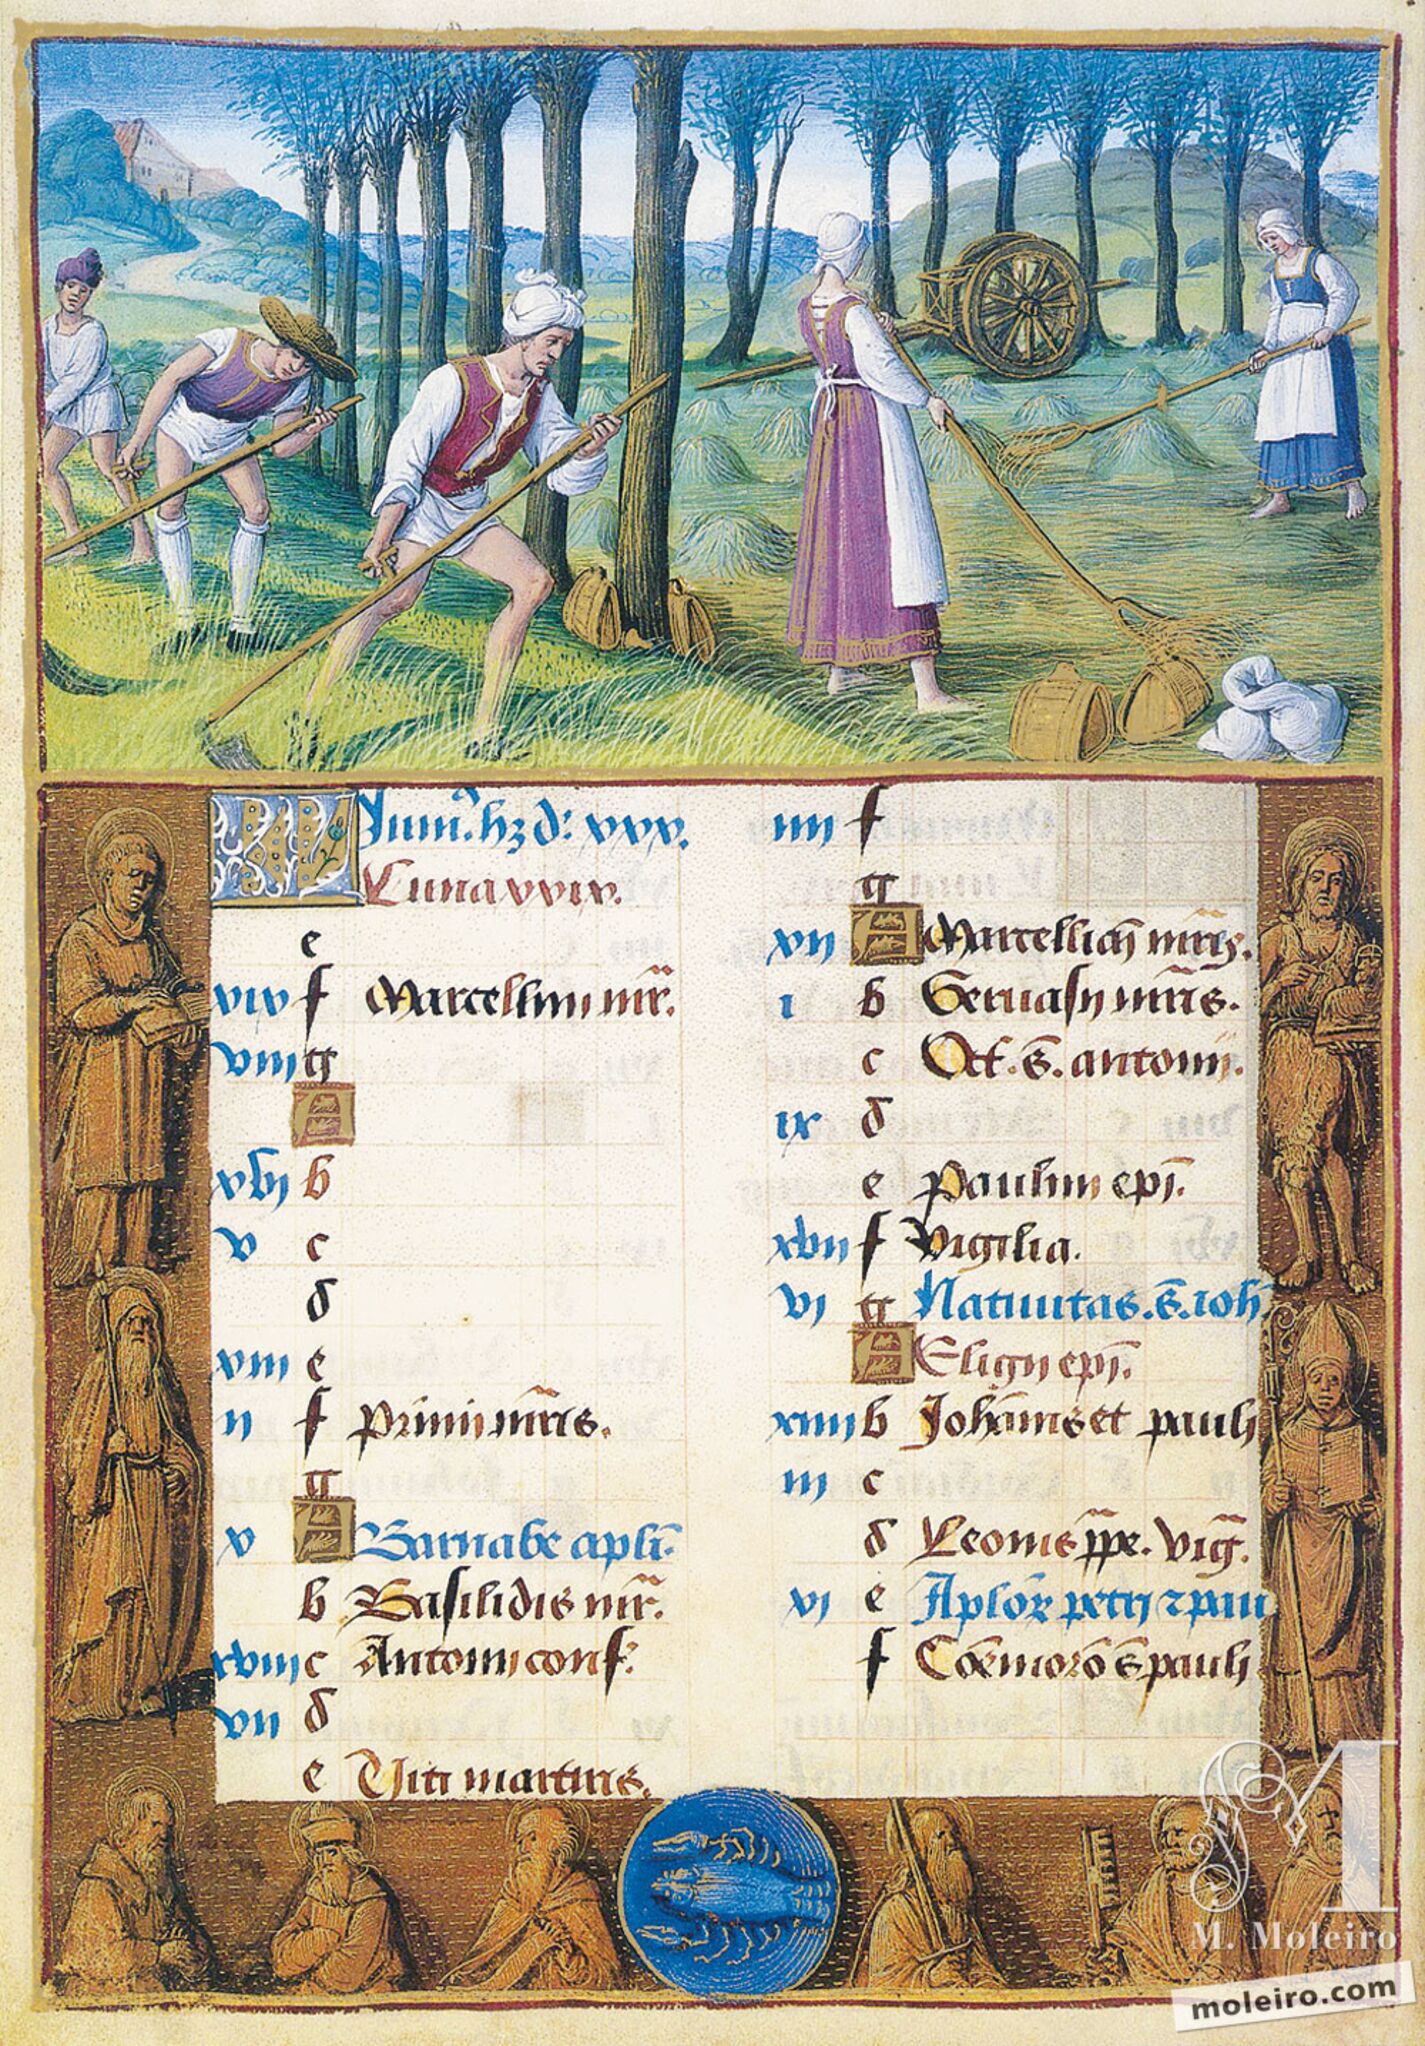 KL Junius. hz d: xxx.
Luna xxix.
e
xix f Marcellini mr.
viii g
A
xvi b
v c
d
xiii e
ii f Primi mris.
g
x A Barnabe apli.
b Basilidis mr.
xviii c Antonii conf.
vii d
e Viti martiris.
iiii f
g
xii A Marcelliani mris.
i b Gervasii mris.
c Oct. s. antonii.
ix d
e Paulini epi.
xvii f Vigilia.
vi g Nativitas. s. ioh.
A Eligii epi.
xiiii b Johannis et pauli
iii c
d Leonis ppe. vig.
xi e Aplor petri z pau
f Comemoro s pauli
M. Moleiro
moleiro.com